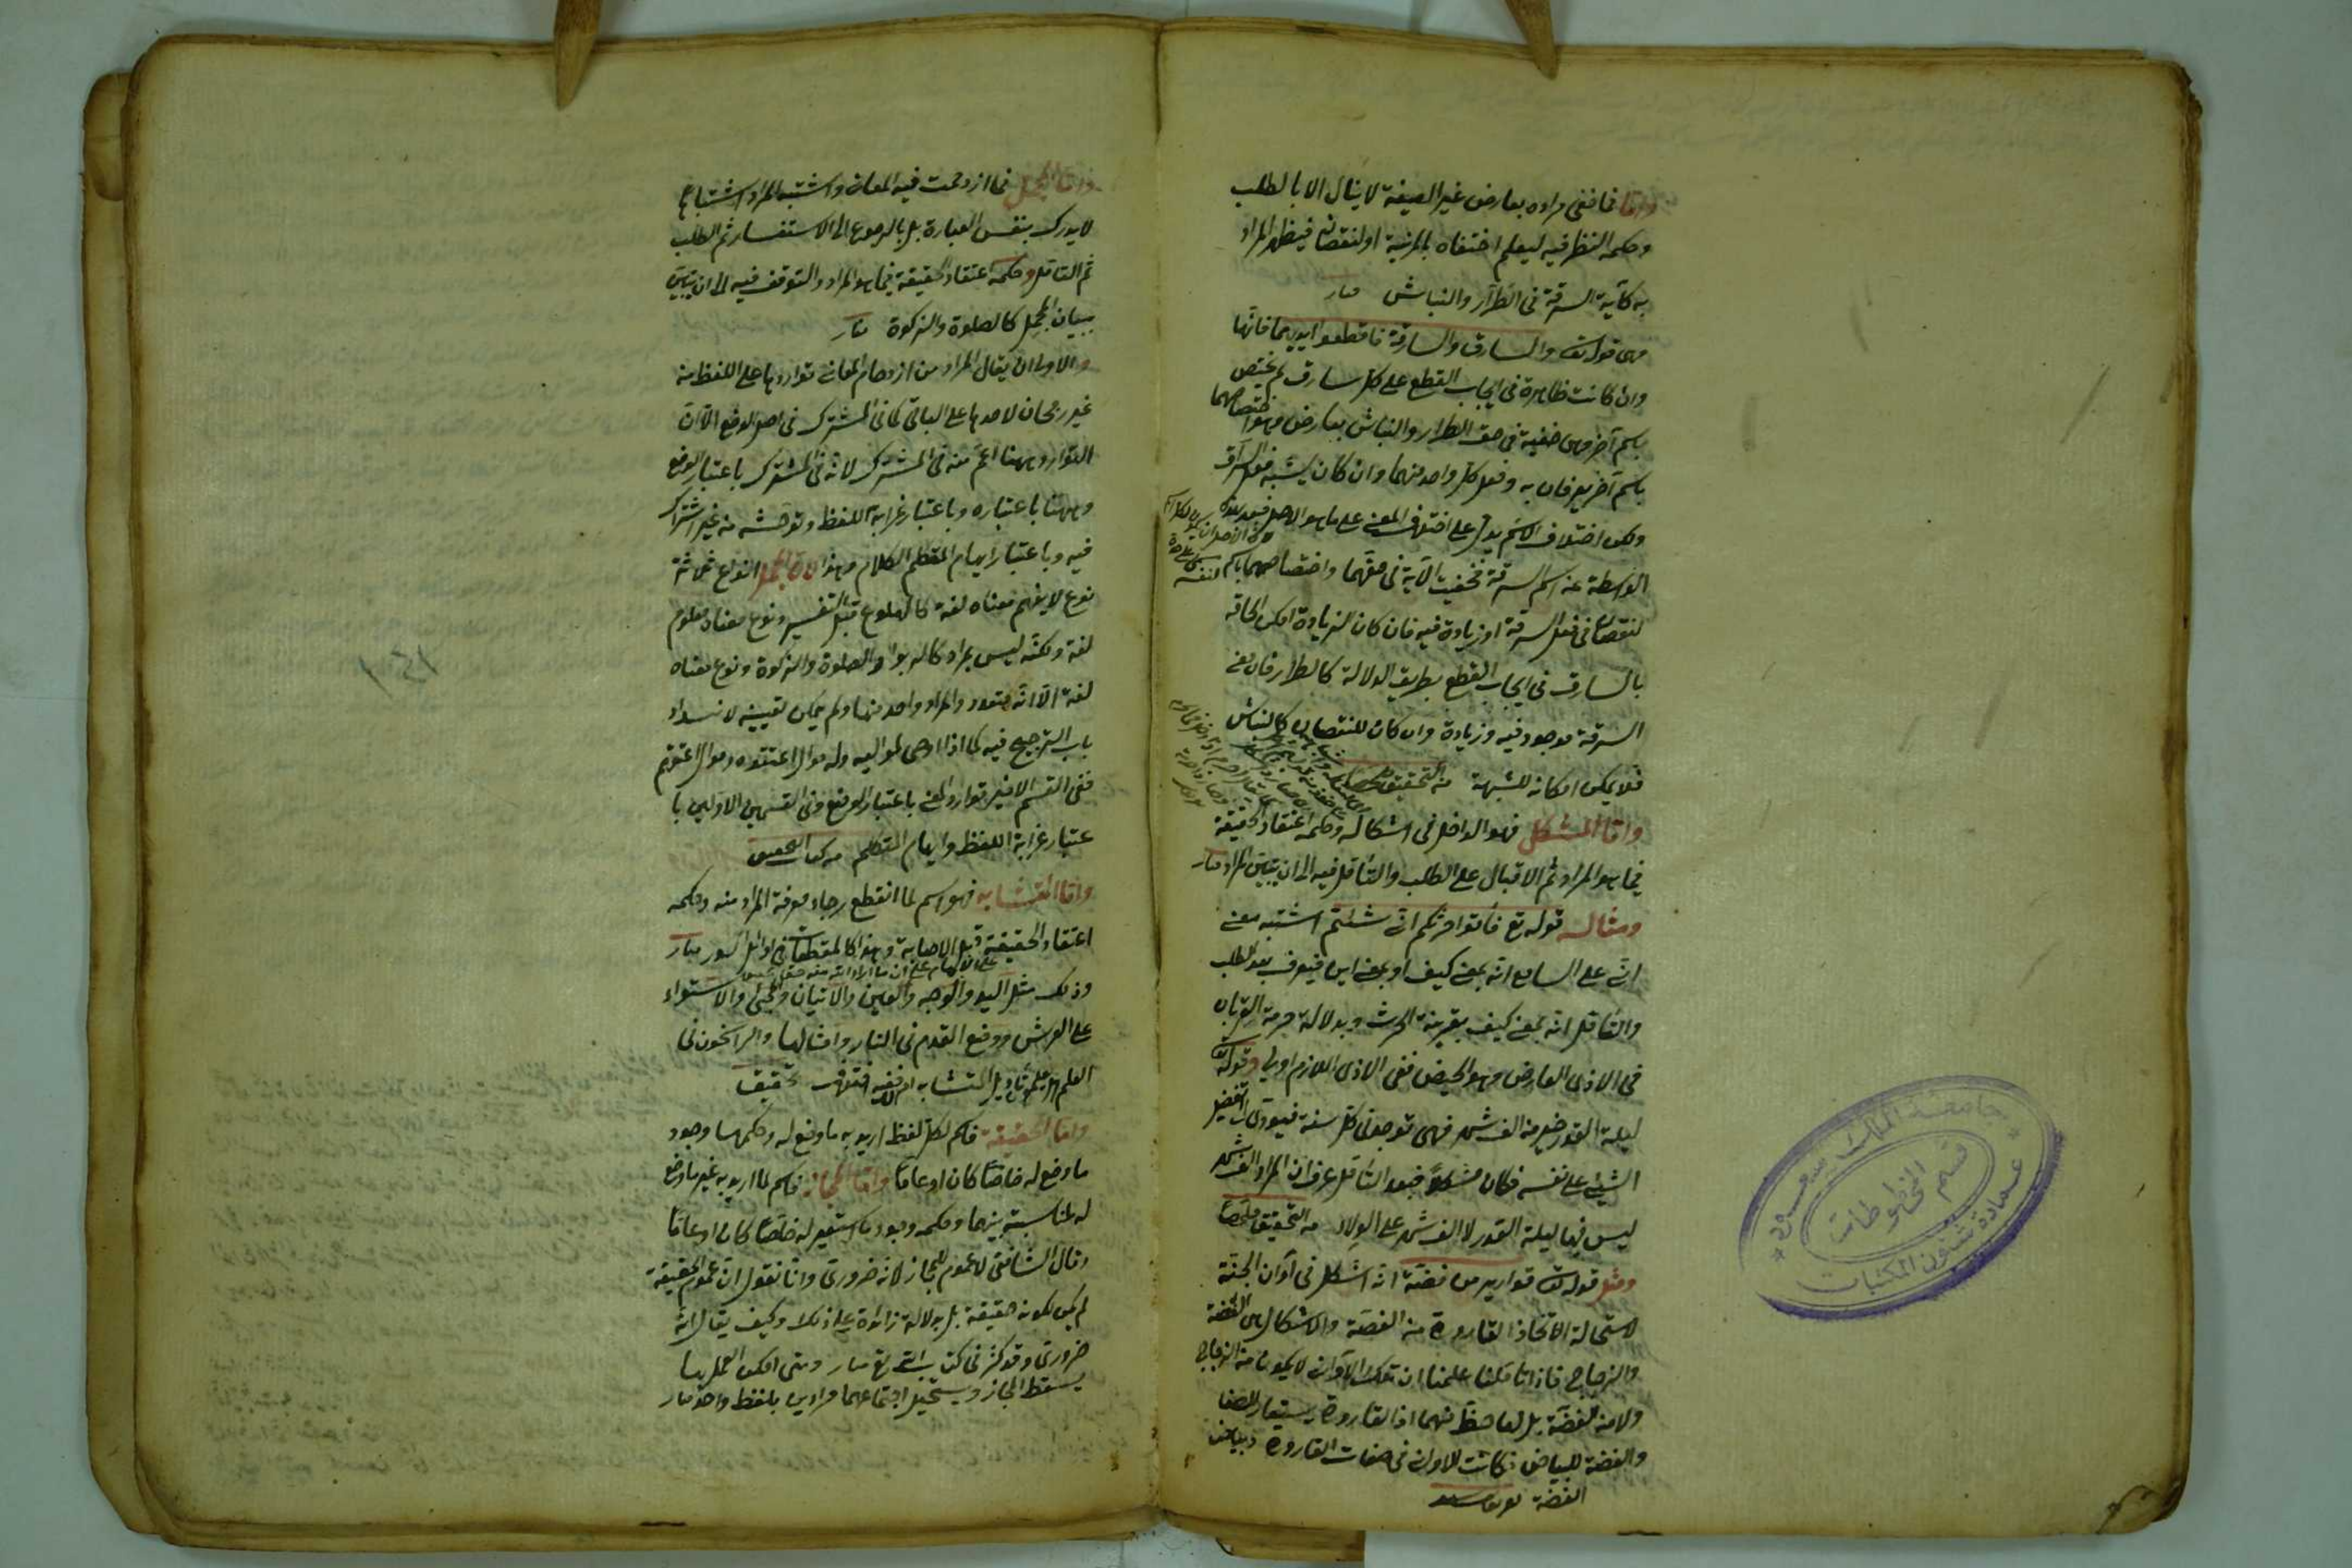 واما فما خفى مراده بعارض غير الصيغة لا ينال الا بالطلب
وحكمه النظر فيه ليعلم اختفاه لمزية او لنقصان فيظهر المراد
به كآية السرقة فى الطرار والنباش منار
وهى قوله تع والسارق والسارقة فاقطعوا ايديهما فانها
وان كانت ظاهرة فى ايجاب القطع على كل سارق لم يختص
باسم آخر وهى خفية فى حق الطرار والنباش بعارض وهو اختصاصهما
باسم آخر يعرفان به وفعل كل واحد منهما وان كان يشبه فعل السارق
ولكن اختلاف الاسم يدل على اختلاف المعنى على ما هو الاصل فبعد
الواسطة عن اسم السرقة فخفيت الآية فى حقهما واختصاصهما باسم
لنقصان فى فعل السرقة او زيادة فيه فان كان لزيادة امكن الحاقه
بالسارق فى ايجاب القطع بطريق الدلالة كالطرار فان معنى
السرقة موجود فيه وزيادة وان كان للنقصان كالنباش
فلا يمكن امكانه للشبهة من التحقيق
واما المشكل فهو الداخل فى اشكاله وحكمه اعتقاد الحقيقة
فيما هو المراد ثم الاقبال على الطلب والتأمل فيه الى ان يتبين المراد منار
ومثاله قوله تع فأتوا حرثكم انى شئتم اشتبه معنى
انى على السامع انه بمعنى كيف او بمعنى اين فيعرف بعد الطلب
والتأمل انه بمعنى كيف بقرينة الحرث وبدلالة حرمة القربان
فى الاذى العارض وهو الحيض ففى الاذى اللازم اولى وقوله تع
ليلة القدر خير من الف شهر فهى توجد فى كل سنة فيؤدى الى تفضيل
الشيئ على نفسه فكان مشكلا فبعد التأمل عرف ان المراد الف شهر
ليس فيها ليلة القدر لا الف شهر على الولاء من التحقيق ملخصا
ومثل قوله تع قوارير من فضة انه اشكل فى آوان الجنة
لاستحالة اتخاذ القارورة من الفضة والاشكال هى الفضة
والزجاج فاذا تأملنا علمنا ان تلك الآوانى لا يكون من الزجاج
ولا من الفضة بل لها حظ منهما اذ القارورة يستعار للصفا
والفضة للبياض فكانت الاوانى فى صفات القارورة وبياض
الفضة
واما المجمل فما ازدحمت فيه المعانى واشتبه المراد اشتباها
لا يدرك بنفس العبارة بل بالرجوع الى الاستفسار ثم الطلب
ثم التأمل وحكمه اعتقاد الحقيقة فيما هو المراد والتوقف فيه الى ان يتبين
ببيان المجمل كالصلوة والزكوة منار
والاولى ان يقال المراد من ازدحام المعانى تواردها على اللفظ من
غير رجحان لاحدها على الباقى كما فى المشترك فى اصل الوضع الا ان
التوارد ههنا اعم منه فى المشترك لانه فى المشترك باعتبار الوضع
وههنا باعتباره وباعتبار غرابة اللفظ وتوحشه من غير اشتراك
فيه وباعتبار ابهام المتكلم الكلام وهذا لان المجمل انواع ثلاثة
نوع لا يفهم معناه لغة كالهلوع قبل التفسير ونوع معناه معلوم
لغة ولكنه ليس بمراد كالربوا والصلوة والزكوة ونوع معناه
لغة الا انه متعدد والمراد واحد منها ولم يمكن تعيينه لانسداد
باب الترجيح فيه كما اذا اوصى لمواليه وله موال اعتقوه وموال اعتقهم
ففى القسم الاخير توارد المعنى باعتبار الوضع وفى القسمين الاولين با
عتبار غرابة اللفظ وابهام المتكلم من كتاب التحقيق
واما المتشابه فهو اسم لما انقطع رجاء معرفة المراد منه وحكمه
اعتقاد الحقيقة قبل الاصابة وهذا كالمقطعات فى اوائل السور منار
وذلك مثل اليد والوجه والعين والاتيان والمجئ والاستواء
على العرش ووضع القدم فى النار وامثالها والراسخون فى
العلم هل يعلم تأويل المتشابه ام لا ففيه اختلاف تحقيق
واما الحقيقة فاسم لكل لفظ اريد به ما وضع له وحكمها وجود
ما وضع له خاصا كان او عاما واما المجاز فاسم لما اريد به غير ما وضع
له لمناسبة بينهما وحكمه وجود ما استعير له خاصا كان او عاما
وقال الشافعى لا عموم للمجاز لانه ضرورى وانا نقول ان عموم الحقيقة
لم يكن لكونه حقيقة بل بدلالة زائدة على ذلك وكيف يقال انه
ضرورى وقد كثر فى كتاب الله تع منار ومتى امكن العمل بها
يسقط المجاز ويستحيل اجتماعهما مرادين بلفظ واحد منار
جامعة الملك سعود
قسم المخطوطات
عمادة شئون المكتبات